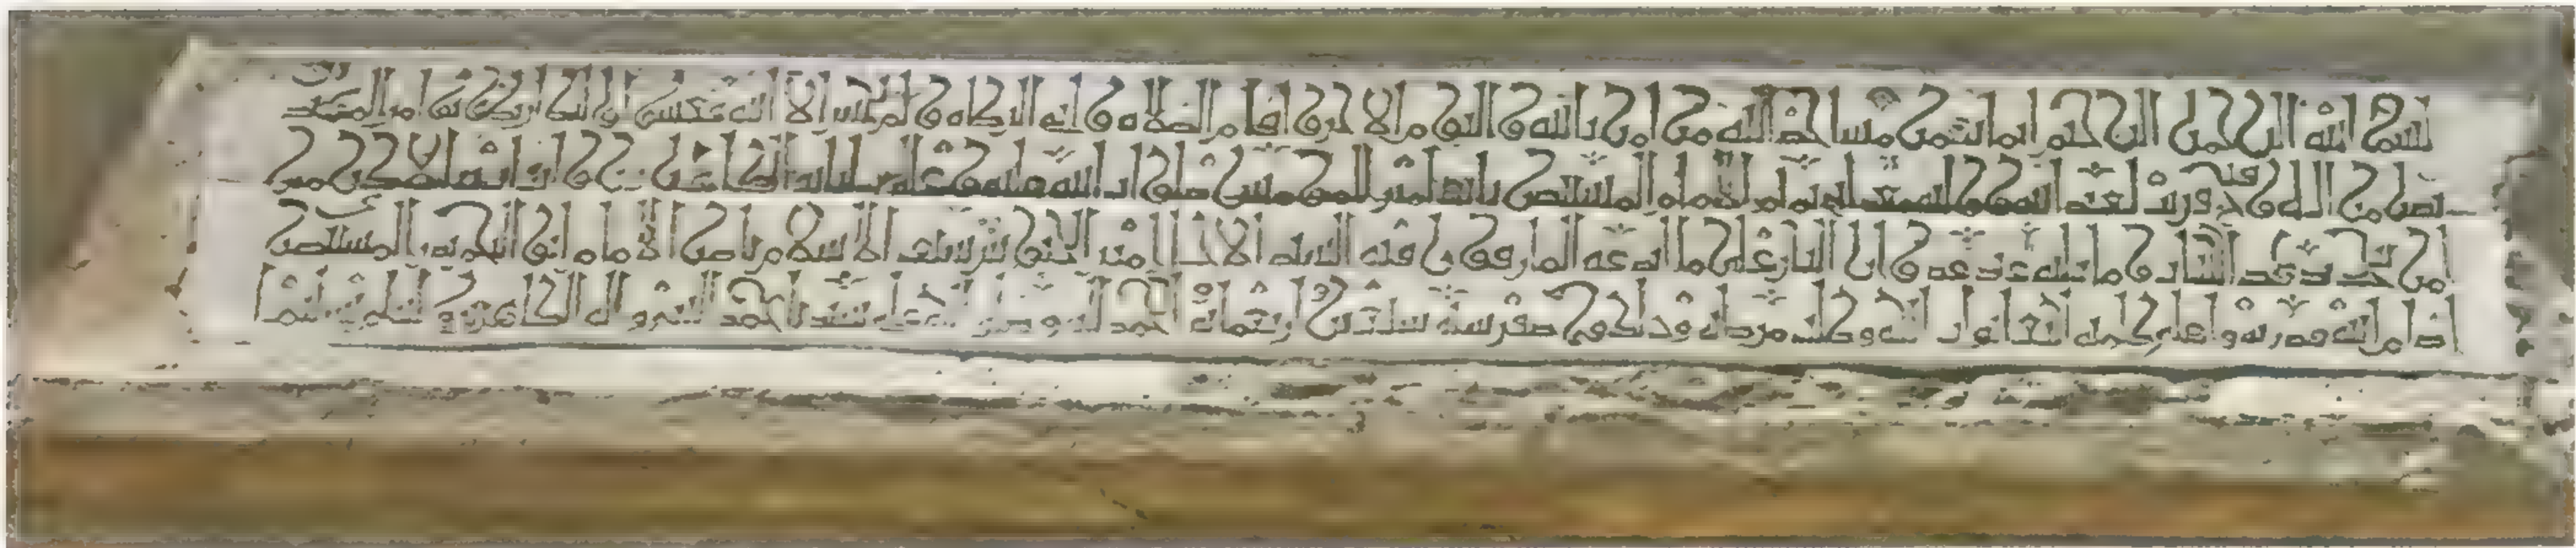 بسم الله الرحمن الرحيم إنما يعمر مساجد الله من آمن بالله واليوم الآخر وأقام الصلاة وآتى الزكاة ولم يخش إلا الله فعسى أولئك أن يكونوا من المهتدين
نصر من الله وفتح قريب لعبد الله ووليه معد أبي تميم الإمام المستنصر بالله أمير المؤمنين صلوات الله عليه وعلى آبائه الطاهرين وأبنائه الأكرمين
أمر بتجديد هذا الباب وما يليه عند النار على ما أبدعه المارقون فيه السيد الأجل أمير الجيوش سيف الإسلام ناصر الإمام أبو النجم بدر المستنصري
أدام الله قدرته وأعلى كلمته ابتغاء ثواب الله وطلب مرضاته وذلك في صفر سنة سبعين وأربعمائة الحمد لله وصلى الله على سيدنا محمد النبي وآله الطاهرين وسلم تسليما